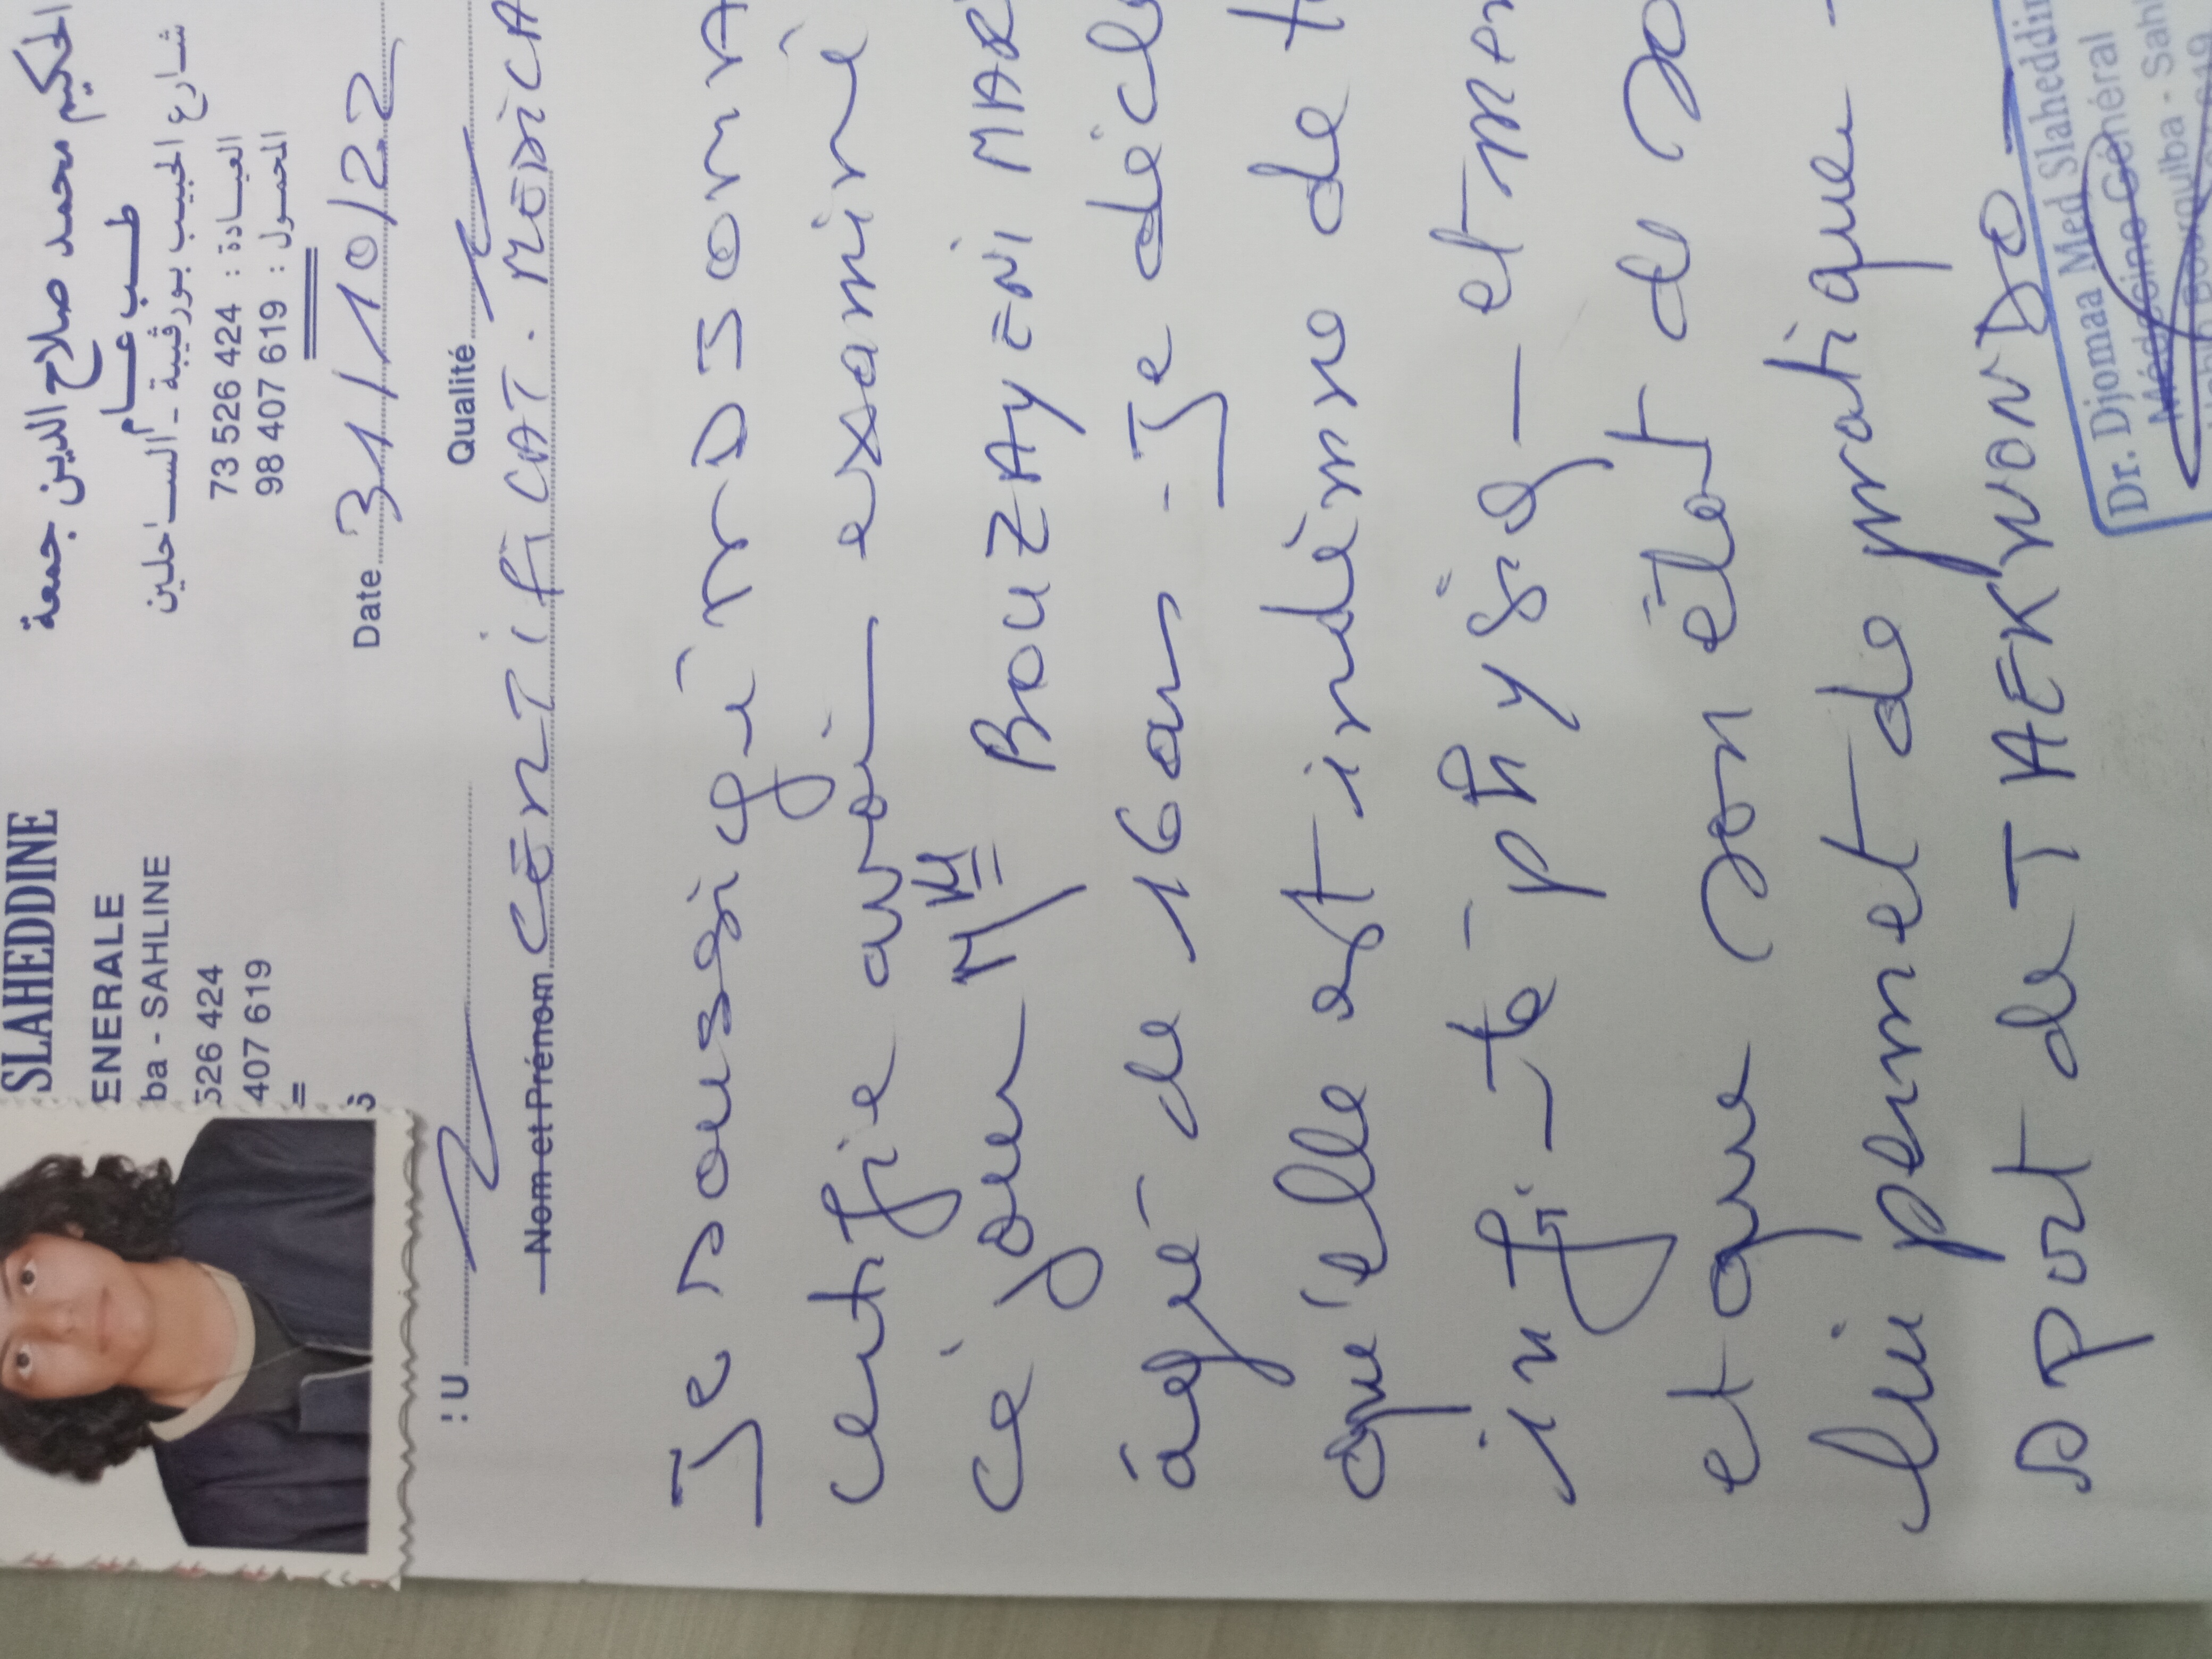 SLAHEDDINE
ENERALE
ba - SAHLINE
526 424
407 619
الحكيم محمد صلاح الدين جمعة
طب عام
شارع الحبيب بورقيبة - الساحلين
العيادة : 73 526 424
المحمول : 98 407 619
Date 31/10/22
: U Qualité
Nom et Prénom CERTIFICAT. MEDICA
Je soussigné DR DJOMA
certifie avoir examiné
ce jour Mlle BOUZAYENI MAR
âgé de 16 ans - Je décl
qu'elle est indemne de t
infi-té physiq - et men
et que son état de sa
lui permet de pratique -
sport de TAEKWONDO
Dr. Djomaa Med Slaheddin
Médecine Général
Bourguiba - Sahl